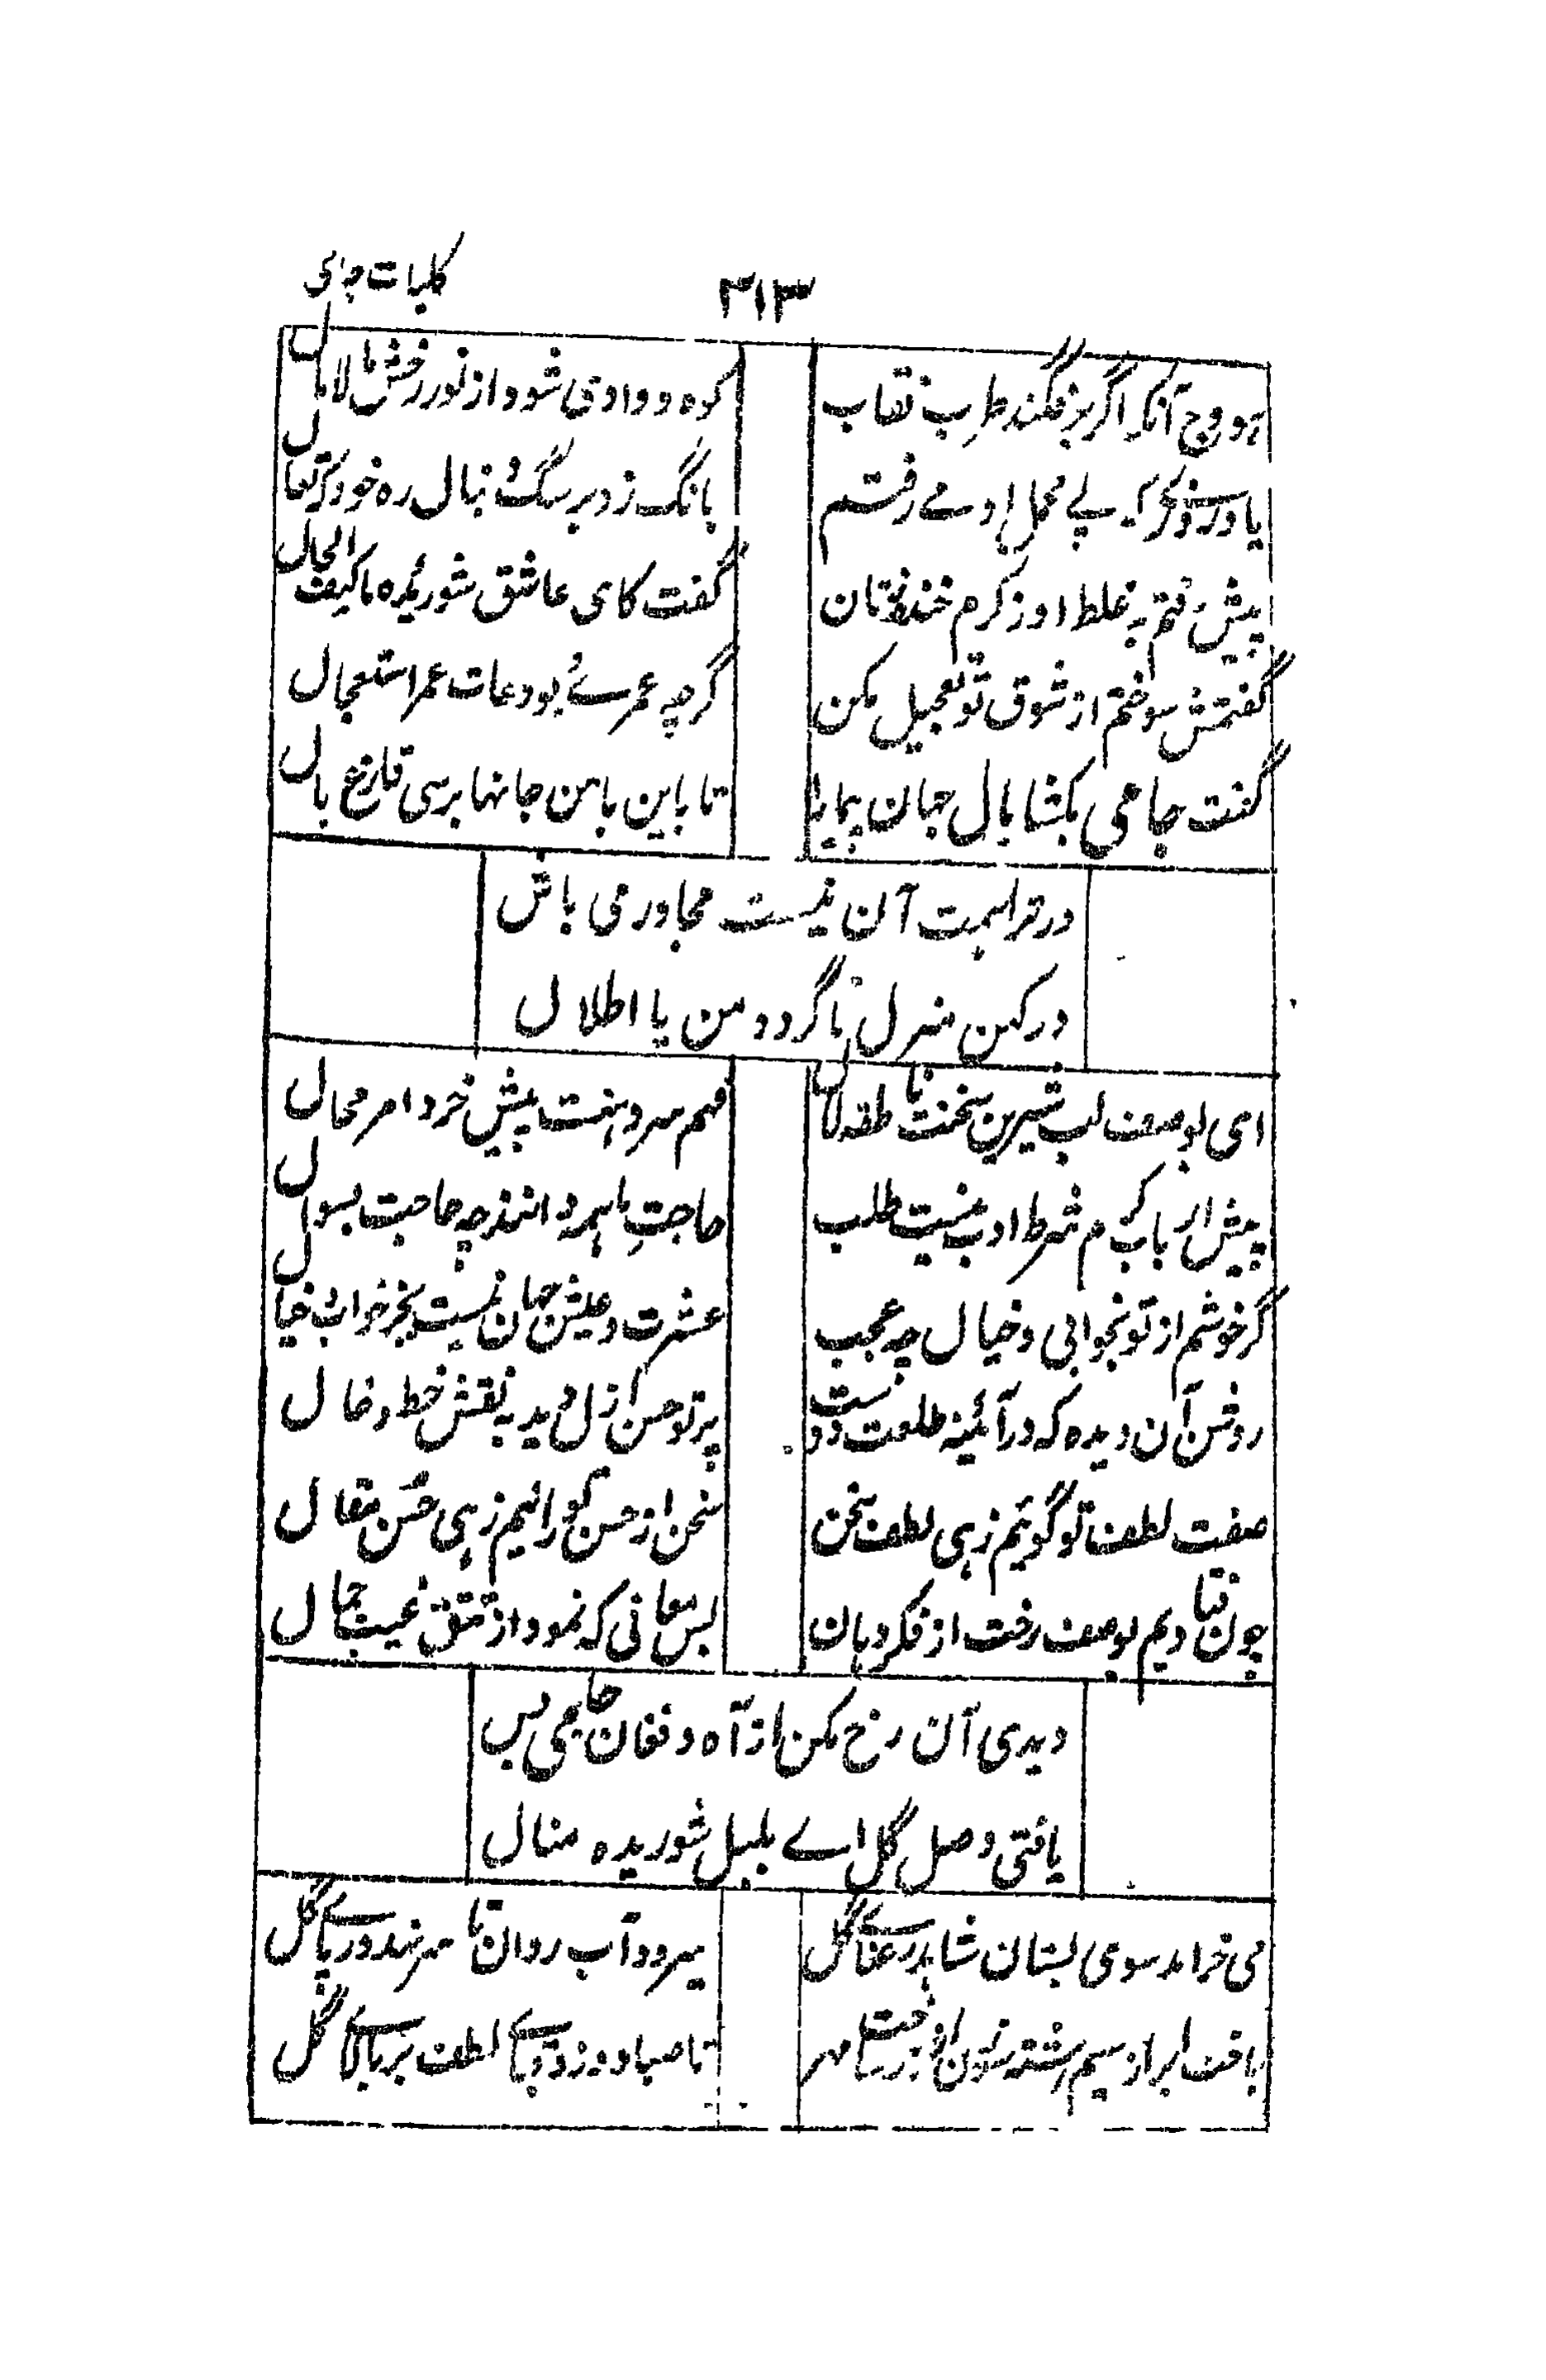 کلیات جامی
۳۱۳
آنکه اگر برفگند طرب نقاب
کوه و وادی شود از نور رخش مالامال
پی محمل او مے رفتم
بانگ زد بر سگ دنبال ره خود کرد تعال
پیش رفتم به غلط او ز کرم خنده زنان
گفت کای عاشق شوریده ما کیف الحال
گفتمش سوختم از شوق تو تعجیل مکن
گرچه عمرے بود عادت عمر استعجال
گفت جامی بکشا بال جهان پیما را
تا باین بامن جانها برسی فارغ بال
در ترا همت آن نیست مجاور می باش
در کهن منزل ما گرد دمن یا اطلال
ای بوصف لب شیرین سخنت ناطقه لال
فهم سر دهنت پیش خرد امر محال
پیش ارباب کرم شرط ادب نیست طلب
حاجت ما همه دانند چه حاجت بسوال
گر خوشم از تو بخوابی و خیال چه عجب
عشرت و عیش جهان نیست بجز خواب و خیال
روشن آن دیده که در آئینه طلعت دوست
پرتو حسن ازل دید به نقش خط و خال
صفت لطف تو گوئیم زهی لطف سخن
سخن از حسن تو رانیم زهی حسن مقال
چون فتادیم بوصف رخت از فکر دهان
بس معانی که نمود از تتق غیب جمال
دیدی آن رخ مکن از آه و فغان جامی بس
یافتی وصل گل اے بلبل شوریده منال
می خرامد سوی بستان شاهد رعنائے گل
میرود آب روان تا سر نهد در پائے گل
بافت ابر از سیم رشته
تا صبا دوزد قبائے لطف بر بالائے گل